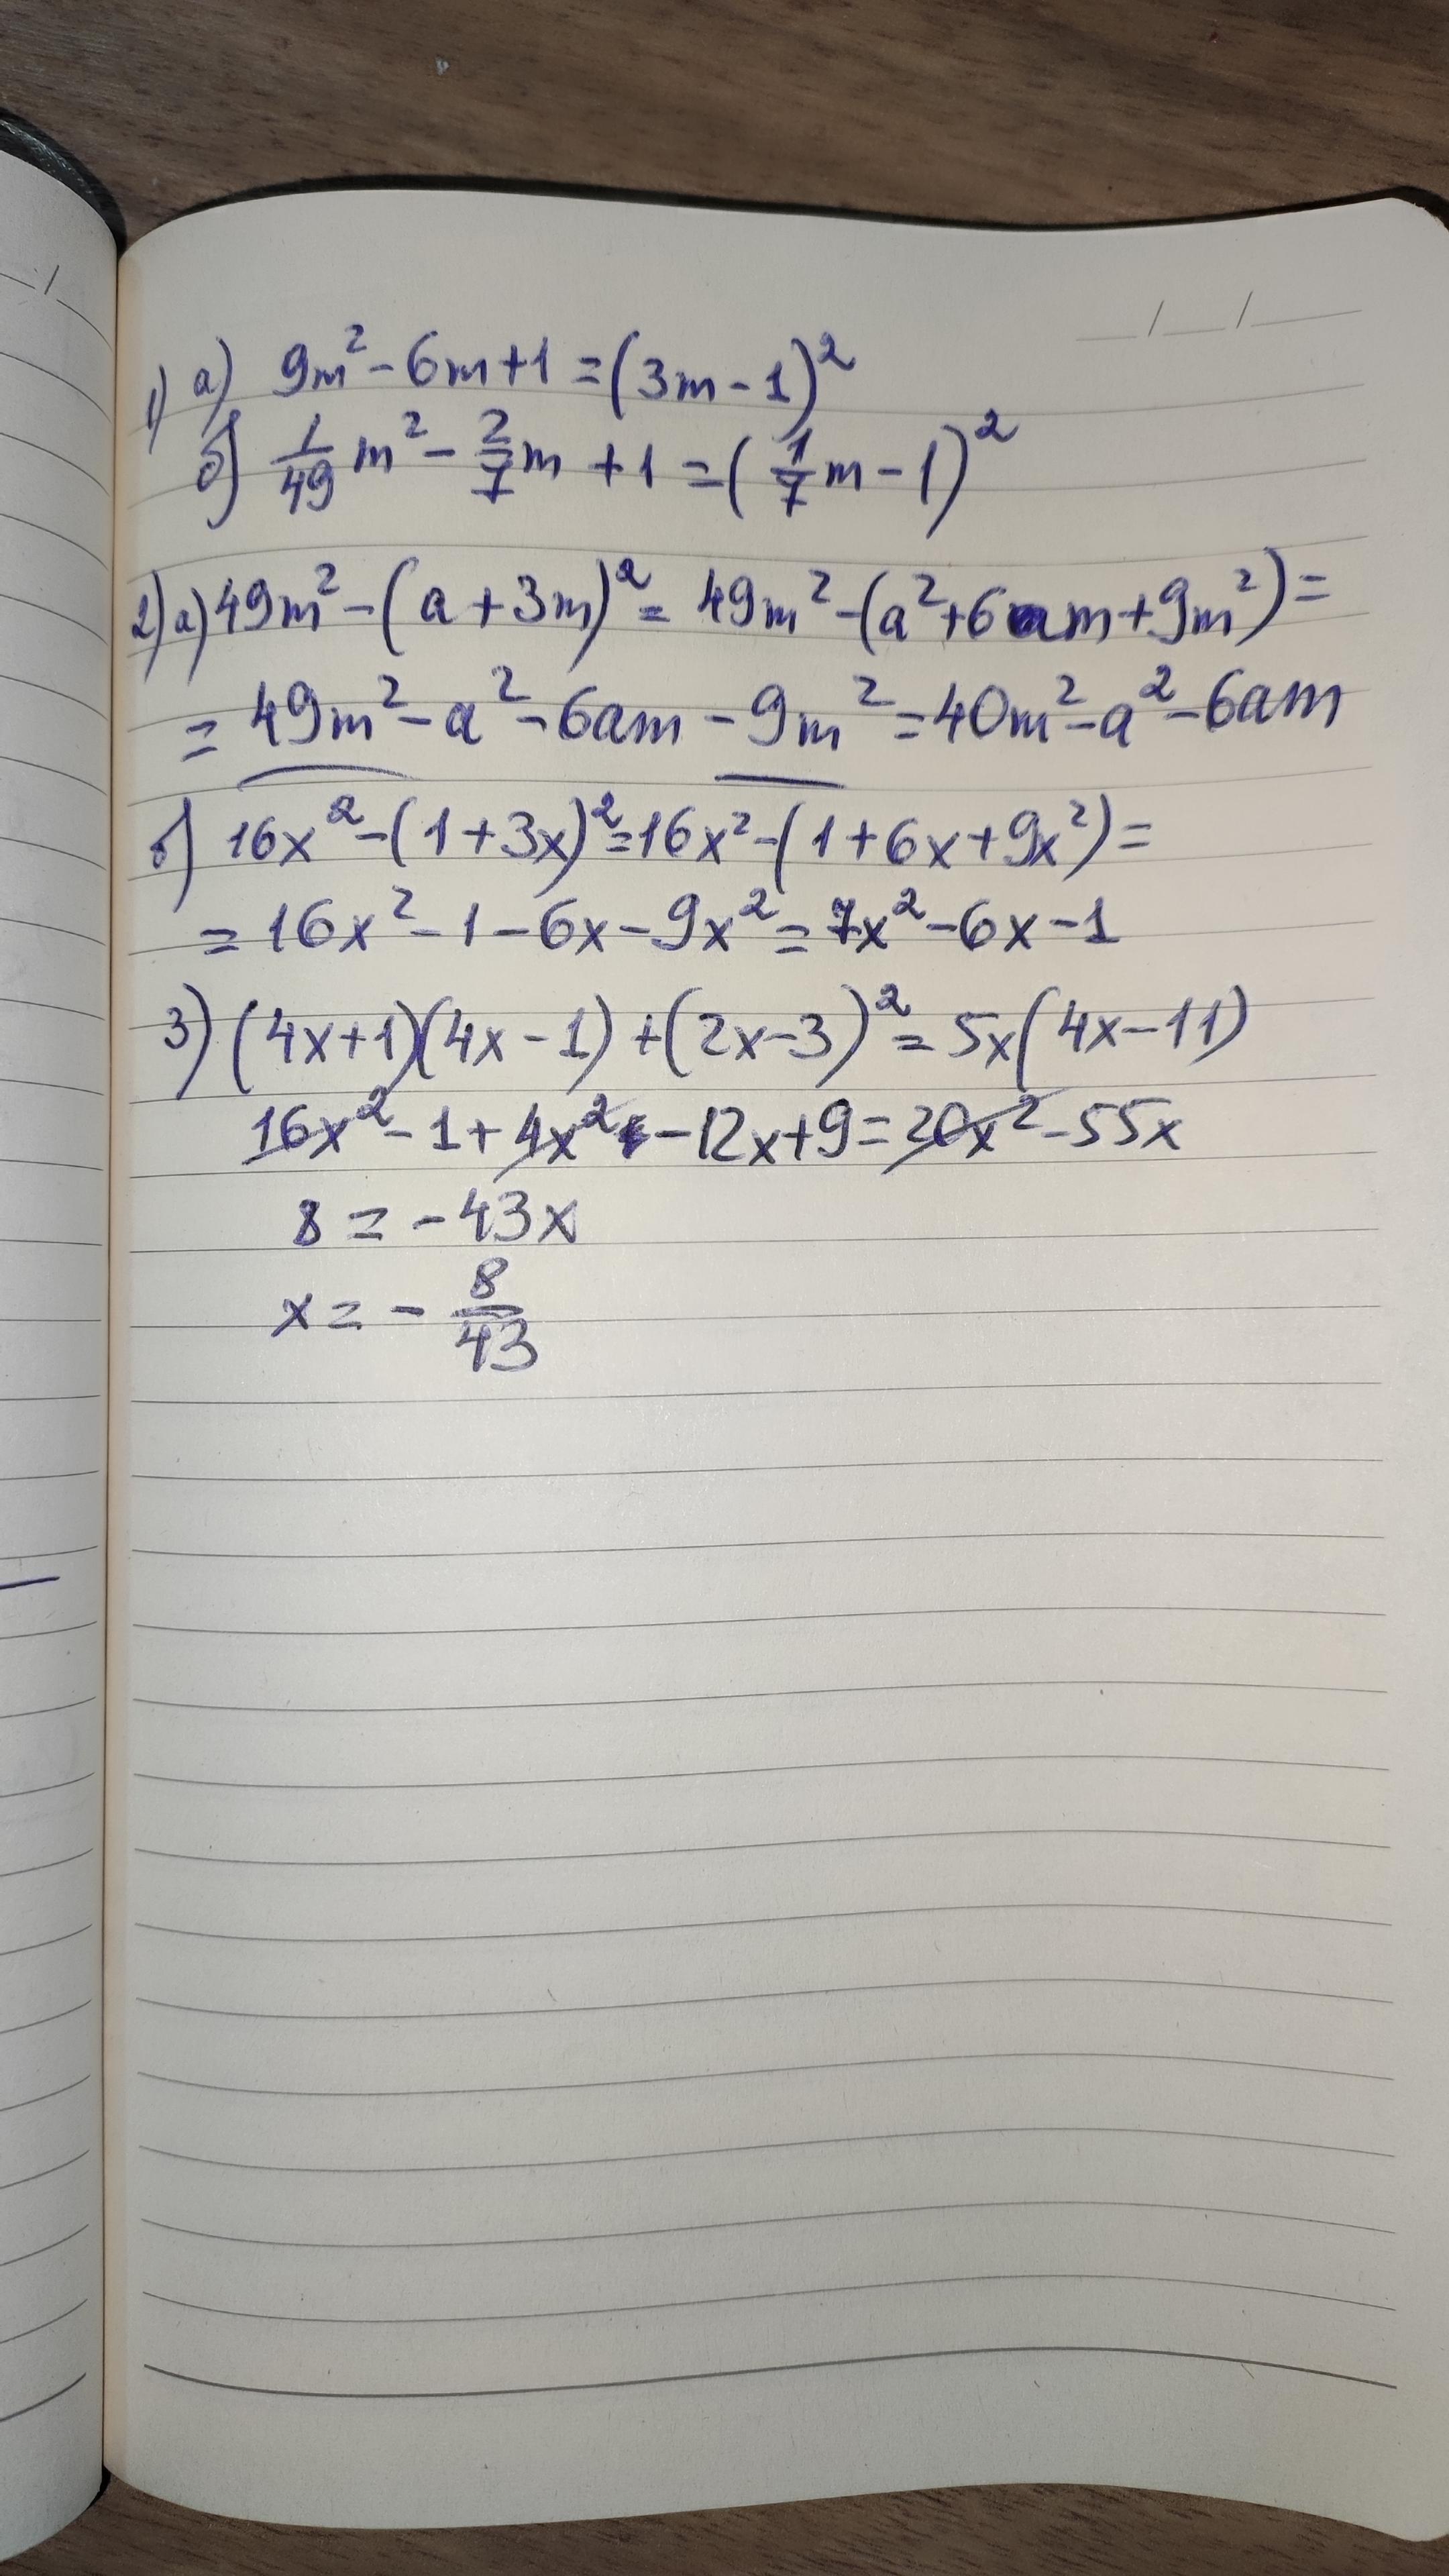 __/__/____
1) а) 9m² - 6m + 1 = (3m - 1)²
б) 1/49 m² - 2/7 m + 1 = (1/7 m - 1)²
2) а) 49m² - (a + 3m)² = 49m² - (a² + 6am + 9m²) =
= 49m² - a² - 6am - 9m² = 40m² - a² - 6am
б) 16x² - (1 + 3x)² = 16x² - (1 + 6x + 9x²) =
= 16x² - 1 - 6x - 9x² = 7x² - 6x - 1
3) (4x + 1)(4x - 1) + (2x - 3)² = 5x(4x - 11)
16x² - 1 + 4x² - 12x + 9 = 20x² - 55x
8 = - 43x
x = - 8/43